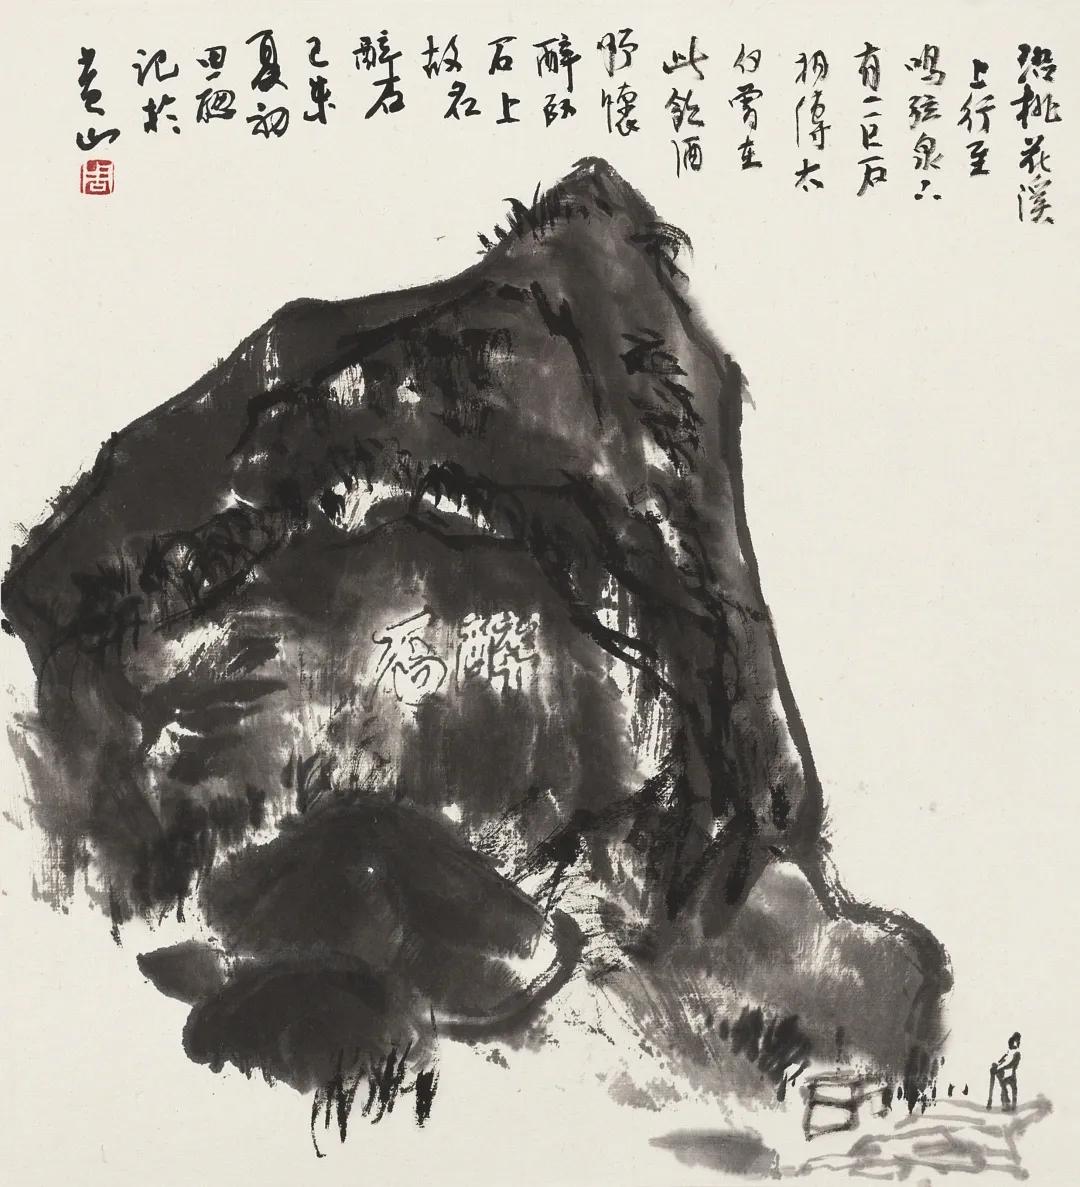 沿桃花溪
上行至
鸣弦泉下
有一巨石
相傳太
白曾在
此飲酒
舒懷
醉卧
石上
故名
醉石
己未
夏初
思聰
记於
黄山
周
醉